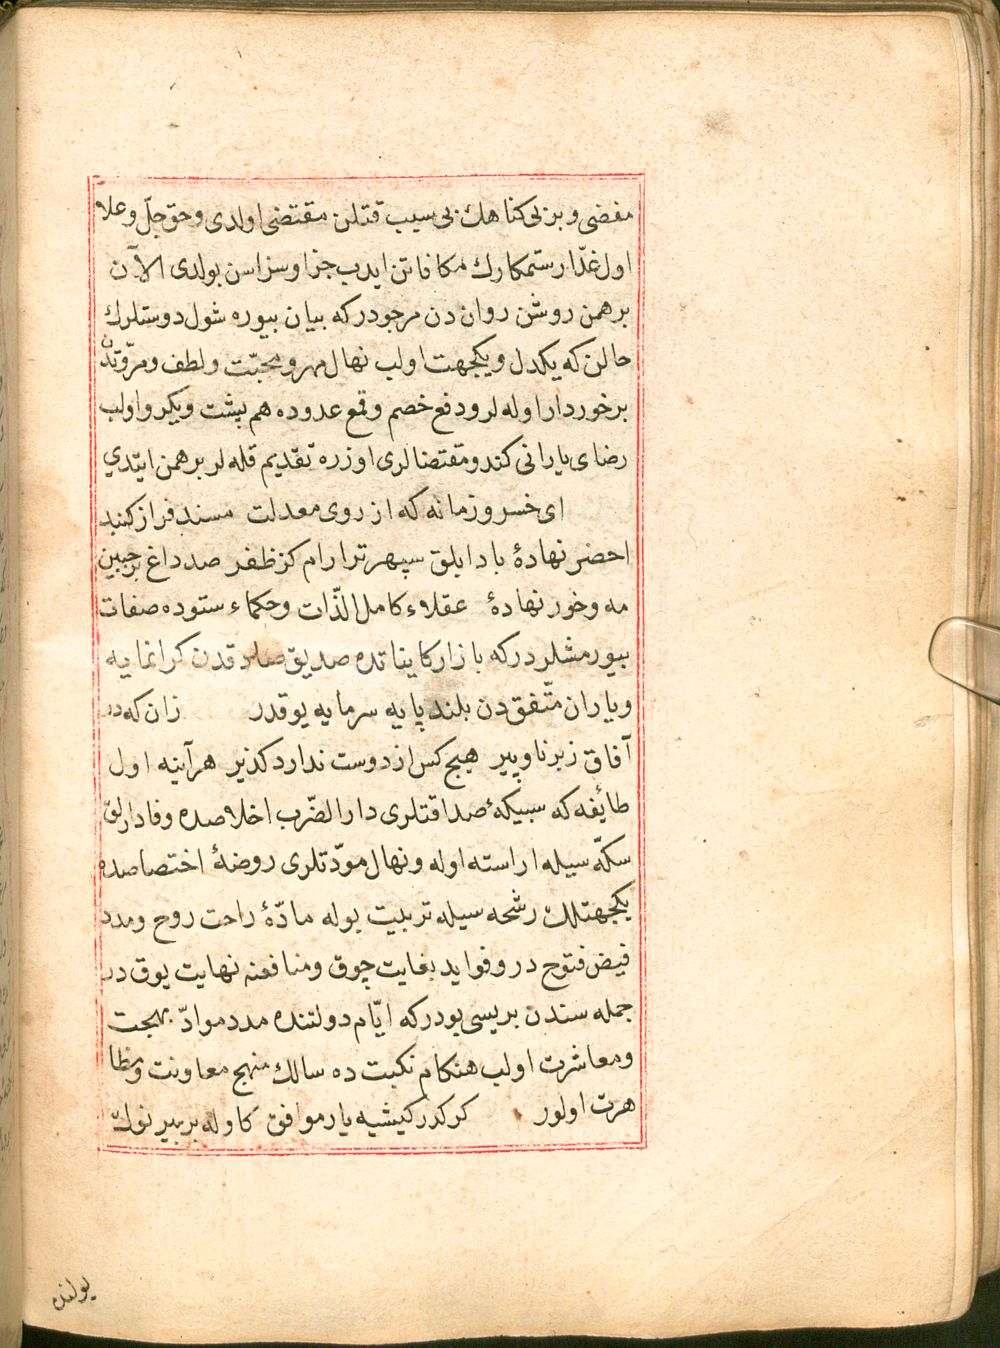 مفضی و بر بی کناهك بی سبب قتلن مقتضی اولدی و حق جلّ و علا
اول غدّار ستمکارك مکافاتن ایدب جزا و سزاسن بولدی الآن
برهمن روشن رواندن مرجودر که بیان بیوره شول دوستلرك
حالن که یکدل و یکجهت اولب نهال مهر و محبّت و لطف و مروّتدن
برخوردار اوله لر و دفع خصم و قمع عدوده هم پشت و یکرو اولب
رضای یارانی کندو مقتضالری اوزره تقدیم قله لر برهمن ایتدی
ای خسرو زمانه که از روی معدلت مسند فراز کنبد
اخضر نهادۀ باد ابلق سپهر ترا رام کز ظفر صد داغ بر جبین
مه و خور نهادۀ عقلاء کامل الذّات و حکماء ستوده صفات
بیورمشلردر که بازار کایناتده صدیق صادقدن کرانمایه
و یاران متّفقدن بلند پایه سرمایه یوقدر زان که در
آفاق ز برنا و پیر هیچ کس از دوست ندارد کذیر هر آینه اول
طائفه که سبیکۀ صداقتلری دار الضّرب اخلاصده وفادارلق
سکّه سیله اراسته اوله و نهال مودّتلری روضۀ اختصاصده
یکجهتلك رشحه سیله تربیت بوله مادّۀ راحت روح و مدد
فیض فتوح در و فواید بغایت چوق و منافعنه نهایت یوق در
جمله سندن بریسی بودر که ایّام دولتنده مدد موادّ بهجت
و معاشرت اولب هنکام نکبت ده سالك منهج معاونت و مظا
هرت اولور کرکدر کیشیه یار موافق کاوله بر بیرنوك
یولنده